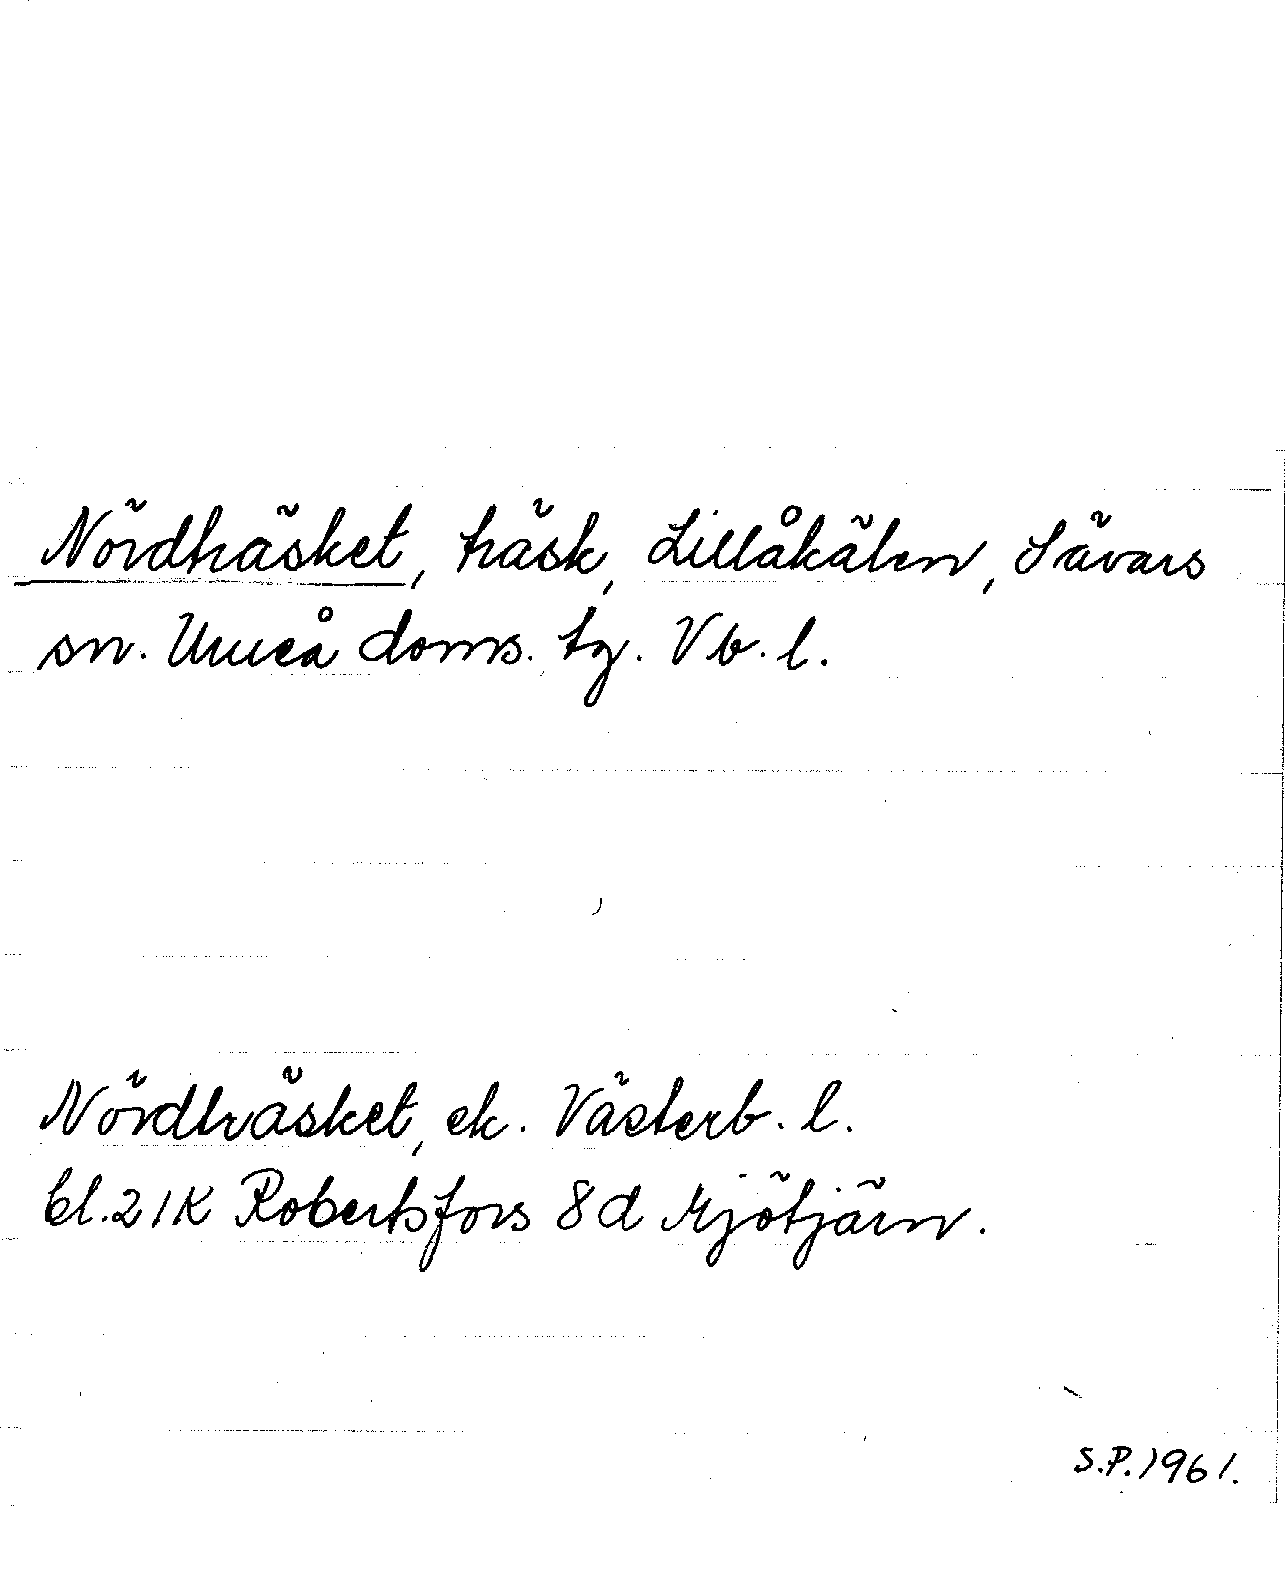 Nördträsket, träsk, Lillåkälen, Sävars
sn. Umeå doms. tg. Vb. l.
Nördträsket, ek. Västerb. l.
bl. 21K Robertsfors 8d Mjötjärn.
S.P. 1961.